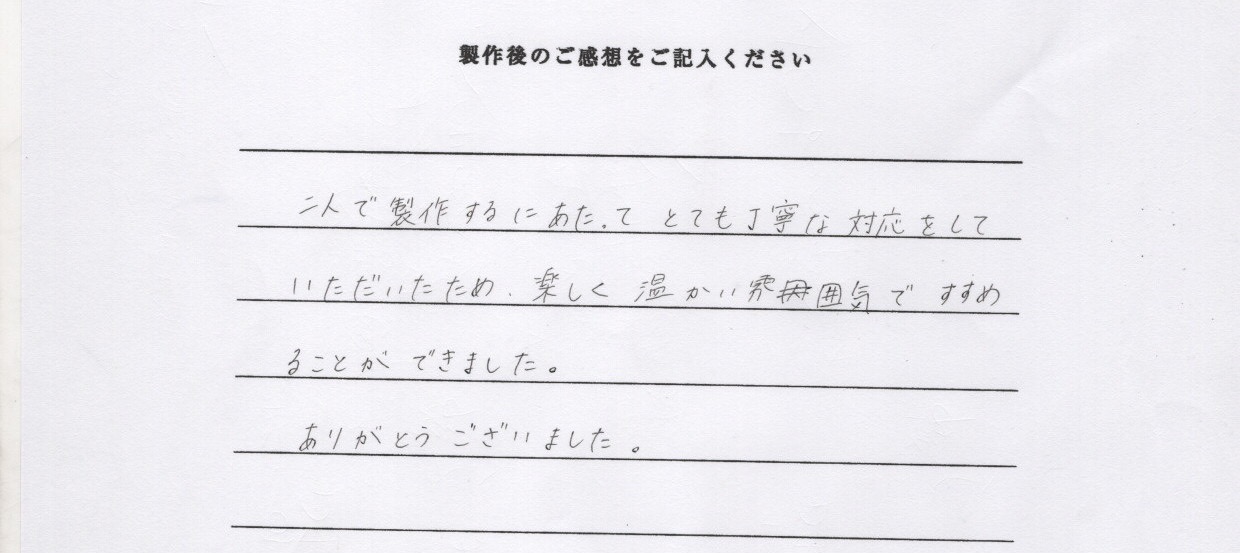 製作後のご感想をご記入ください
二人で製作するにあたって とても丁寧な対応をして
いただいたため、楽しく 温かい雰囲気で すすめ
ることが できました。
ありがとうございました。